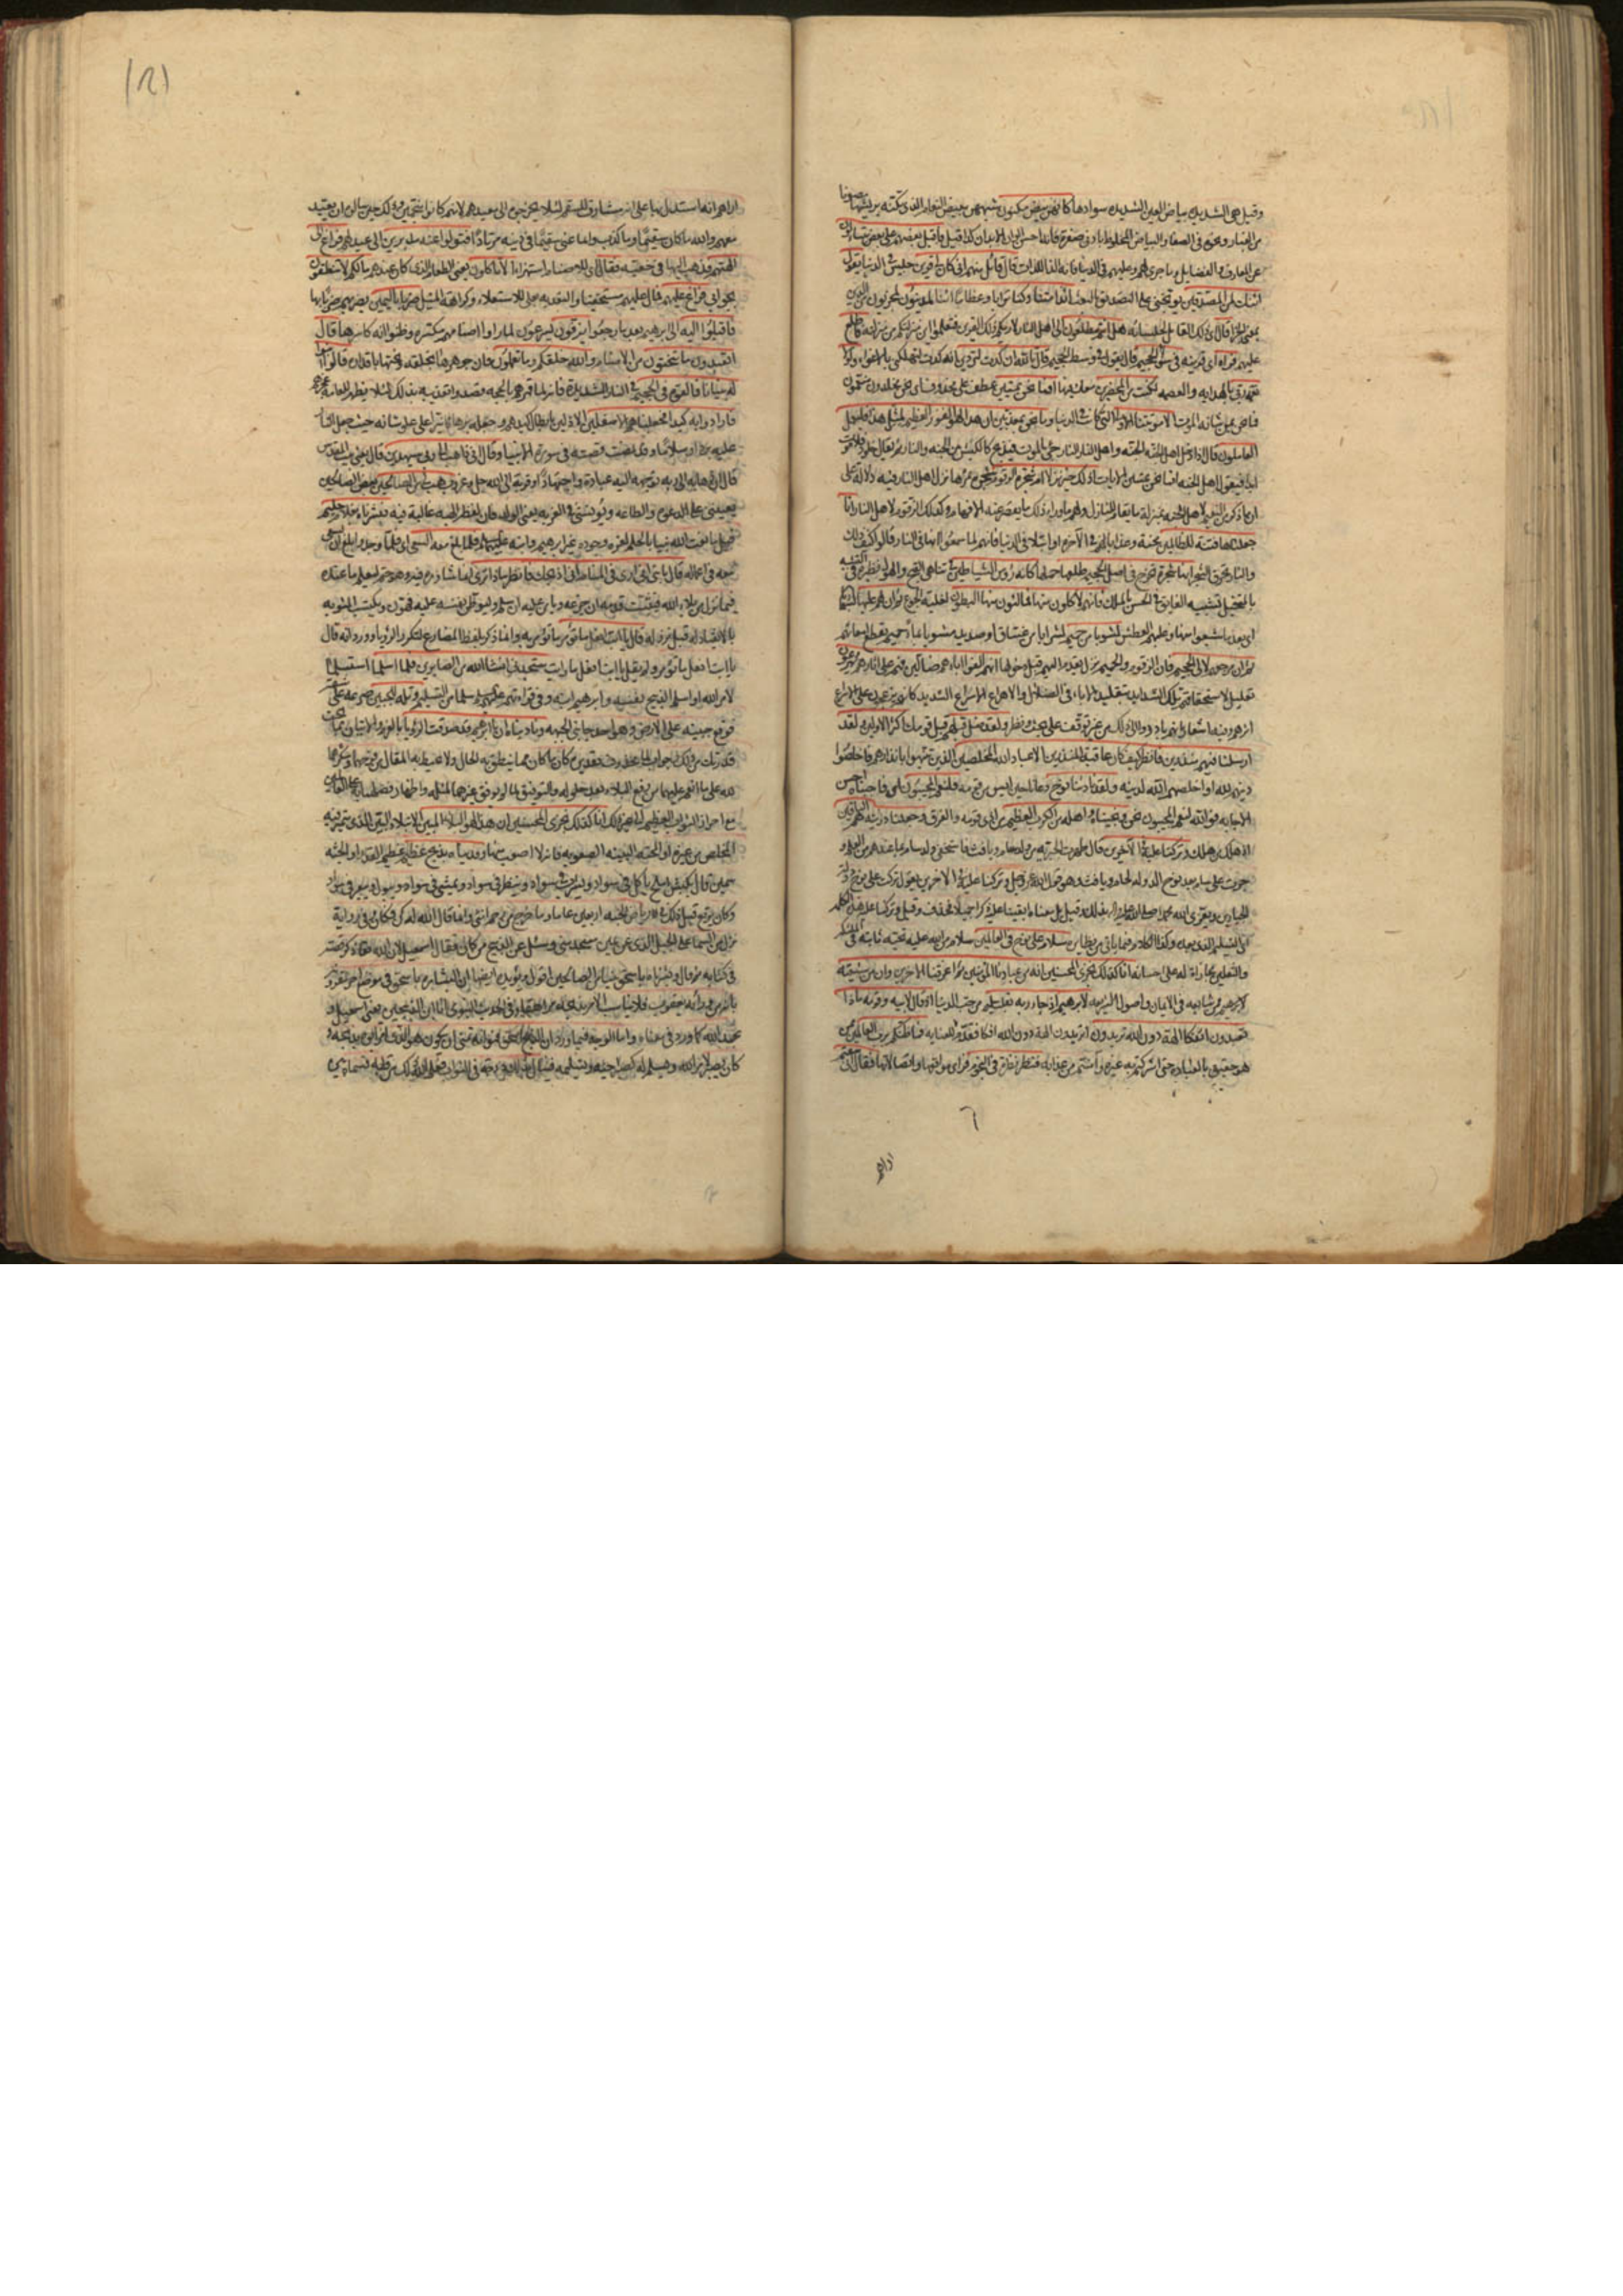 وقيل هي الشديدة بياض العين الشديدة سوادها كأنهن بيض مكنون شبههن ببيض النعام الذي تكنه بريشها مصونا
من الغبار ونحوه في الصفاء والبياض المخلوط بادنى صفرة فانه احسن الوان الابدان كذا قيل فاقبل بعضهم على بعض يتساءلون
عن المعارف والفضايل وما جرى لهم وعليهم في الدنيا فانه الذ اللذات قال قائل منهم اني كان لي قرين جليس في الدنيا يقول
ائنك لمن المصدقين يوبخني على التصديق بالبعث ائذا متنا وكنا ترابا وعظاما ائنا لمدينون لمجزيون من الدين
بمعنى الجزا قال اي ذلك القائل لجلسائه هل انتم مطلعون الى اهل النار لاريكم ذلك القرين فتعلموا اين منزلتكم من منزلته فاطلع
عليهم فراه اي قرينه في سواء الجحيم قال يقول في وسط الجحيم قال تالله ان كدت لتردين انه كدت لتهلكني بالاغواء ولولا
نعمة ربي بالهداية والعصمة لكنت من المحضرين معك فيها افما نحن بميتين عطف على محذوف اي نحن مخلدون منعمون
فما نحن بمن شانه الموت الا موتتنا الاولى التي كانت في الدنيا وما نحن بمعذبين ان هذا لهو الفوز العظيم لمثل هذا فليعمل
العاملون قال اذا دخل اهل الجنة الجنة واهل النار النار جئ بالموت فيذبح كالكبش بين الجنة والنار ثم يقال خلود فلا موت
ابدا فيقول اهل الجنة افما نحن بميتين الايات اذلك خير نزلا ام شجرة الزقوم شجرة ثمرها نزل اهل النار فيه دلالة على
ان ما ذكر من النعيم لاهل الجنة بمنزلة ما يقام للنازل ولهم ما وراء ذلك ما يقصر عنه الافهام وكذلك الزقوم لاهل النار انا
جعلناها فتنة للظالمين محنة وعذابا لهم في الاخرة او ابتلاء في الدنيا فانهم لما سمعوا انها في النار قالوا كيف ذلك
والنار تحرق الشجر انها شجرة تخرج في اصل الجحيم طلعها حملها كانه رؤس الشياطين في تناهي القبح والهول وهو تشبيه
بالمتخيل كتشبيه الفائق في الحسن بالملك فانهم لآكلون منها فمالئون منها البطون لغلبة الجوع ثم ان لهم عليها
اي بعد ما شبعوا منها وغلبهم العطش لشوبا من حميم لشرابا من غساق او صديد مشوبا بماء حميم يقطع امعائهم
ثم ان مرجعهم لالى الجحيم فان الزقوم والحميم نزل يقدم اليهم قبل دخولها انهم الفوا اباءهم ضالين فهم على اثارهم يهرعون
تعليل لاستحقاقهم تلك الشدايد بتقليد الاباء في الضلال والاهراع الاسراع الشديد كانهم يزعجون على الاسراع
اثرهم وفيه اشعار بانهم بادروا الى ذلك من غير توقف على بحث ونظر ولقد ضل قبلهم قبل قومك اكثر الاولين ولقد
ارسلنا فيهم منذرين فانظر كيف كان عاقبة المنذرين الا عباد الله المخلصين الذين تنبهوا بانذارهم فاخلصوا
دينهم لله او اخلصهم الله لدينه ولقد نادانا نوح دعانا حين ايس من قومه فلنعم المجيبون اي فاجبناه احسن
الاجابة فوالله لنعم المجيبون نحن ونجيناه واهله من الكرب العظيم من اذى قومه والغرق وجعلنا ذريته هم الباقين
اذ هلك من هلك وتركنا عليه في الاخرين
الجبارين ويعزى الله محمدا صلى الله عليه وآله بذلك وقيل بل معناه ابقينا عليه ذكرا جميلا فحذف وقيل وتركنا عليه هذا الكلام
سلام على نوح في العالمين سلام من الله عليه تحية ثابتة في
والتعليم مجازاة له على احسانه انا كذلك نجزي المحسنين انه من عبادنا المؤمنين ثم اغرقنا الاخرين وان من شيعته
لابرهيم ممن شايعه في الايمان واصول الشريعة لابرهيم اذ جاء ربه بقلب سليم من حب الدنيا اذ قال لابيه وقومه ماذا
تعبدون ائفكا الهة دون الله تريدون اتريدون الهة دون الله افكا فقدم للعناية فما ظنكم برب العالمين بمن
هو حقيق بالعبادة حتى اشركتم به غيره وامنتم من عذابه فنظر نظرة في النجوم فراى مواقعها واتصالاتها فقال اني سقيم
اراهم
(١٢١
اراهم انه استدل بها على انه مشارف للسقم لئلا يخرجوه الى معبدهم لانهم كانوا منجمين وذلك حين سالوه ان يعيد
معهم والله ما كان سقيما وما كذب وانما عنى سقيما في دينه مرتادا فتولوا عنه مدبرين الى عيدهم فراغ الى
الهتهم فذهب اليها في خفية فقال اي للاصنام استهزاء الا تاكلون يعني الطعام الذي كان عندهم ما لكم لا تنطقون
بجوابي فراغ عليهم فمال عليهم مستخفيا والتعدية بعلى للاستعلاء وكراهة الميل ضربا باليمين يضربهم ضربا بها
فاقبلوا اليه الى ابرهيم بعد ما رجعوا يزفون يسرعون لما راوا اصنامهم مكسرة وظنوا انه كاسرها قال
اتعبدون ما تنحتون من الاصنام والله خلقكم وما تعملون فان جوهرها بخلقه ونحتها باقداره قالوا ابنوا
له بنيانا فالقوه في الجحيم في النار الشديدة فانه لما قهرهم بالحجة قصدوا تعذيبه بذلك لئلا يظهر للعامة عجزهم
فارادوا به كيدا فجعلناهم الاسفلين الاذلين بابطال كيدهم وجعله برهانا نيرا على علو شانه حيث جعل النار
عليه بردا وسلاما وقد مضت قصته في سورة الانبيا وقال اني ذاهب الى ربي سيهدين قال يعني بيت المقدس
قال ذهابه الى ربه توجهه اليه عبادة واجتهادا وقربة الى الله جل وعز رب هب لي من الصالحين بعض الصالحين
يعينني على الدعوة والطاعة ويؤنسني في الغربة يعني الولد فان لفظ الهبة غالبة فيه فبشرناه بغلام حليم
قيل ما نعت الله نبيا بالحلم لعزة وجوده غير ابرهيم وابنه عليهما فلما بلغ معه السعي اي فلما وجد وبلغ ان يسعى
معه في اعماله قال يا بني اني ارى في المنام اني اذبحك فانظر ماذا ترى انما شاوره فيه وهو حتم ليعلم ما عنده
فيما نزل من بلاء الله فيثبت قدمه ان جزع ويامن عليه ان سلم وليوطن نفسه عليه فيهون ويكتسب المثوبة
بالانقياد له قبل نزوله قال يا ابت افعل ما تؤمر ما تؤمر به وانما ذكر بلفظ المضارع لتكرر الرؤيا وورد انه قال
يا ابت افعل ما تؤمر ولم يقل يا ابت افعل ما رايت ستجدني ان شاء الله من الصابرين فلما اسلما استسلما
لامر الله او اسلم الذبيح نفسه وابرهيم ابنه وفي قراءتهم عليهم السلام سلما من التسليم وتله للجبين صرعه على شقه
فوقع جبينه على الارض وهو احد جانبي الجبهة وناديناه ان يا ابرهيم قد صدقت الرؤيا بالعزم والاتيان بما كان تحت
قدرتك من ذلك وجواب لما محذوف تقديره كان ما كان مما ينطق به الحال ولا يحيط به المقال من فرحهما وشكرهما
لله على ما انعم عليهما من رفع البلاء بعد حلوله والتوفيق لما لم يوفق غيرهما لمثله واظهار فضلهما به على العالمين
مع احراز الثواب العظيم الى غير ذلك انا كذلك نجزي المحسنين ان هذا لهو البلاء المبين الابتلاء البين الذي يتميز فيه
المخلص من غيره او المحنة البينة الصعوبة فانه لا اصعب منها وفديناه بذبح عظيم عظيم القدر او الجثة
سمين قال بكبش املح ياكل في سواد ويشرب في سواد وينظر في سواد ويمشي في سواد ويبول ويبعر في سواد
وكان يرتع قبل ذلك في رياض الجنة اربعين عاما وما خرج من رحم انثى وانما قال الله له كن فكان وفي رواية
نزل من السماء على الجبل الذي عن يمين مسجد منى وسئل عن الذبيح من كان فقال اسمعيل لان الله تعالى ذكر قصته
في كتابه ثم قال وبشرناه باسحق نبيا من الصالحين اقول ويؤيده ايضا ان البشارة باسحق في موضع اخر مقرونة
بانه من ورائه يعقوب فلا يناسب الامر بذبحه مراهقا وفي الحديث النبوي انا ابن الذبيحين يعني اسمعيل و
عبد الله كما ورد في معناه واما الوجه فيما ورد ان الذبيح اسحق فهو انه تمنى ان يكون هو الذي امر ابوه بذبحه و
كان يصبر لامر الله ويسلم له كصبر اخيه وتسليمه فينال بذلك درجته في الثواب فعلم الله ذلك من قلبه فسماه